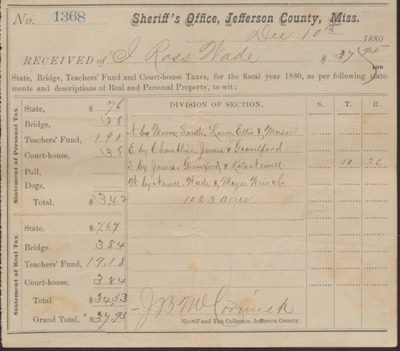 No. 1368 Sheriff's Office, Jefferson County, Miss.
Dec 10th 1880
RECEIVED of I Ross Wade $ 37 95/100
State, Bridge, Teachers' Fund and Court-house Taxes, for the fiscal year 1880, as per following statements and descriptions of Real and Personal Property, to wit:
Statement of Personal Tax.
State, $ 76
Bridge, 38
Teachers' Fund, 190
Court-house, 38
Poll,
Dogs,
Total. $ 342
DIVISION OF SECTION. S. T. R.
N by Moore, Ellis & Mason
E by Chamblin, James &
S by James, & Kate Newell 10 2E
W by Newell, Wade & Meyer Weis & Co
1623 acres
Statement of Real Tax.
State, $ 767
Bridge. 384
Teachers' Fund, 1918
Court-house, 384
Total. $ 3453
Grand Total, $ 3795
J B McCormick
Sheriff and Tax Collector, Jefferson County.